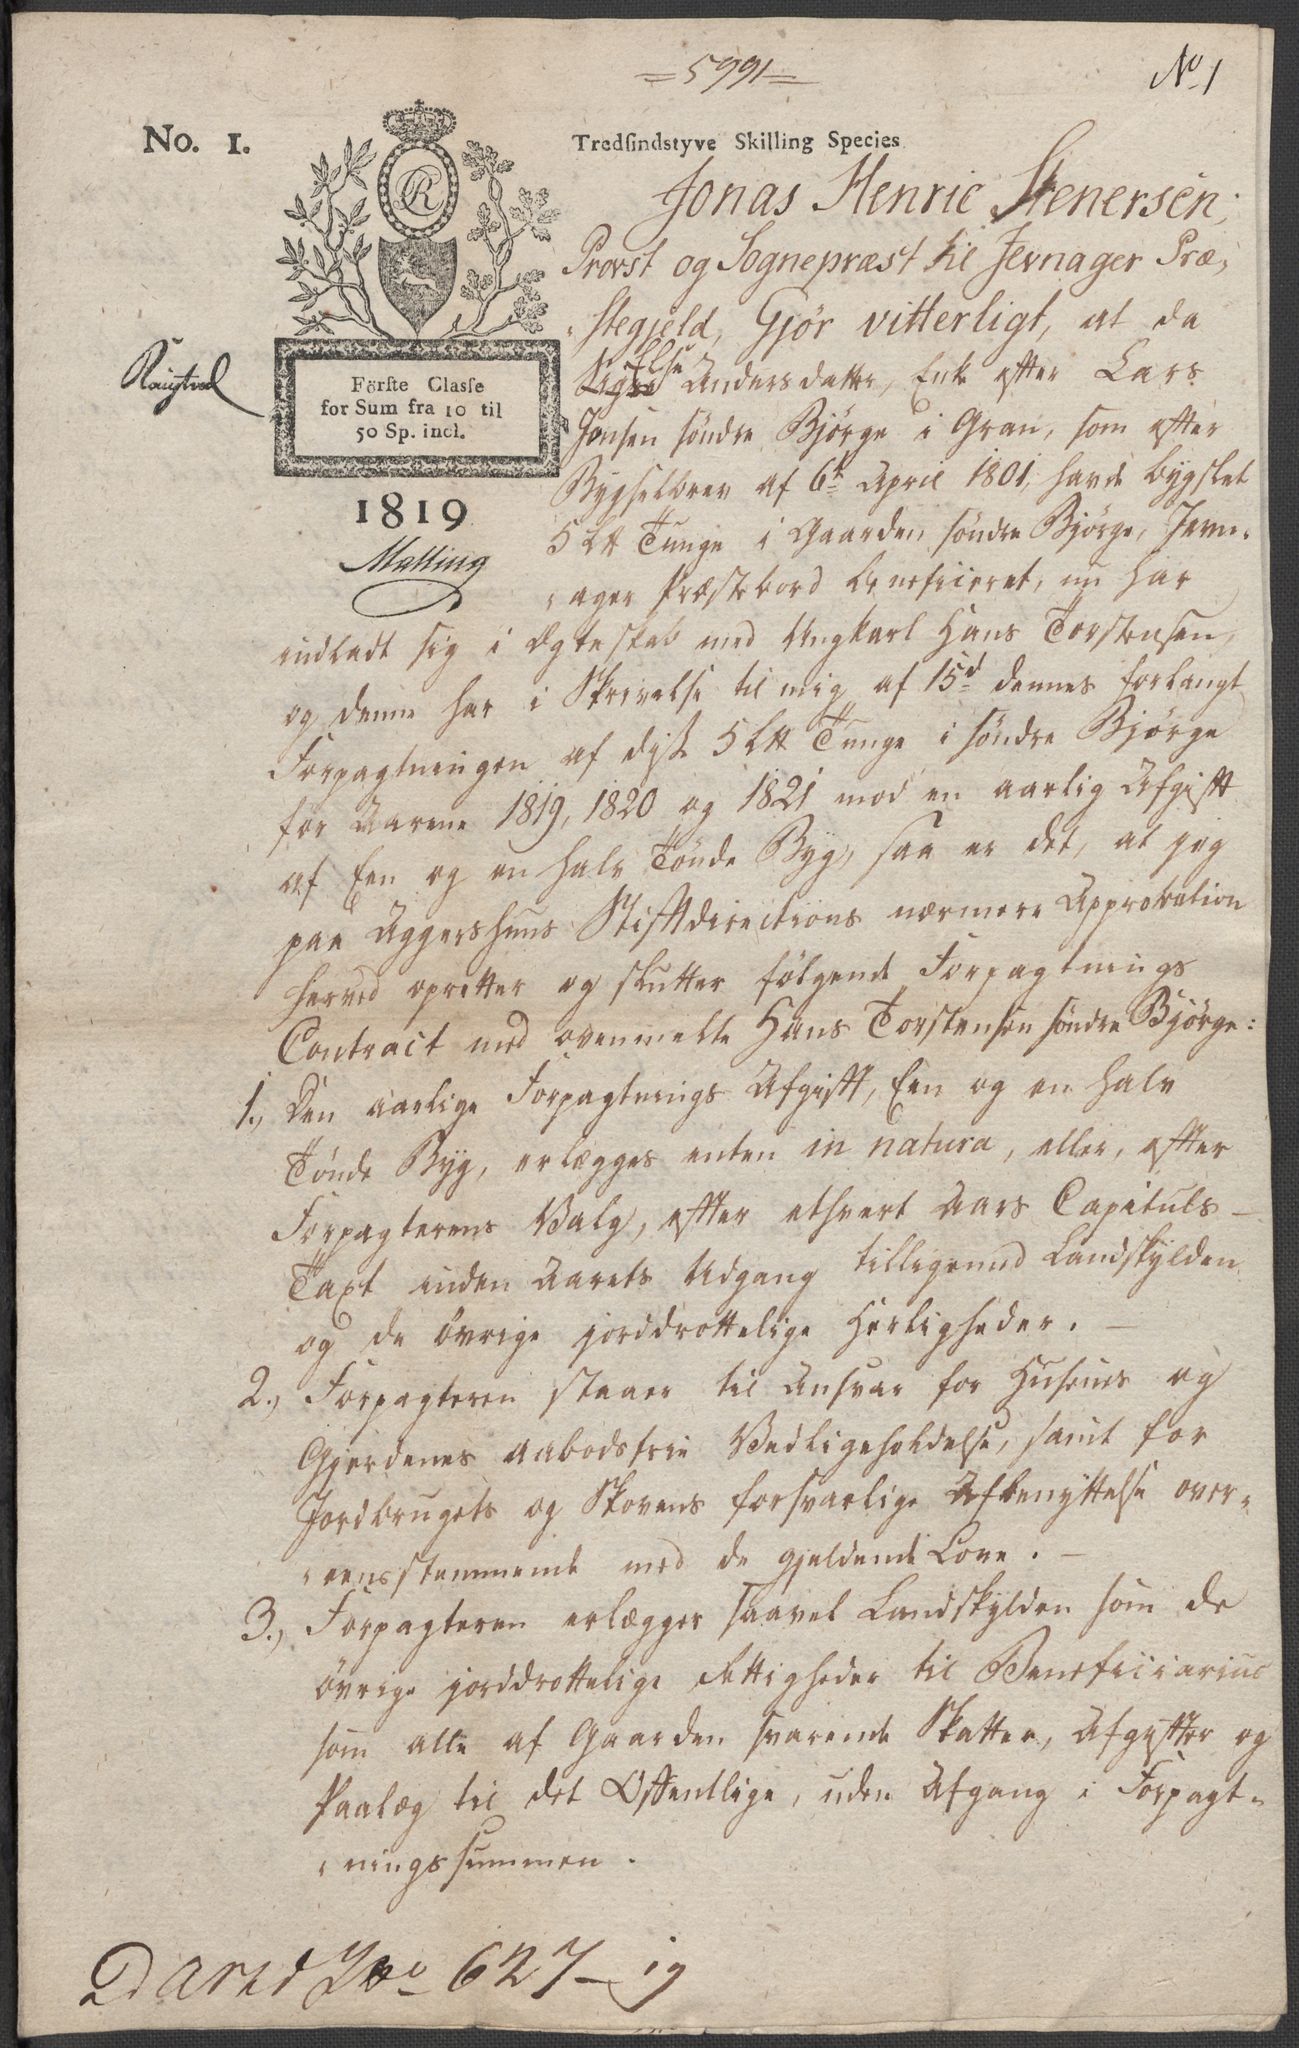 =5991=
No 1
No. 1.
Tredsindstyve Skilling Species
CR
Förste Classe
for Sum fra 10 til
50 Sp. incl.
1819
Malling
Jonas Henric Stenersen,
Provst og Sognepræst til Jevnager Præ-
stegjeld, Gjør vitterligt, at da
Else
Andersdatter, Enke efter Lars
Jonsen søndre Bjørge i Gran, som efter
Bygselbrev af 6t April 1801, havde bygslet
5 L℔ Tunge i Gaarden søndre Bjørge, Jevn-
ager Præstebord beneficeret, nu har
indladt sig i Ægteskab med Ungkarl Hans Torstensen,
og denne har i Skrivelse til mig af 15d dennes forlangt
Forpagtningen af disse 5 L℔ Tunge i søndre Bjørge
for Aarene 1819, 1820 og 1821 mod en aarlig Afgift
af Een og en halv Tønde Byg, saa er det, at jeg
paa Aggershuus Stiftdirections nærmere Approbation
herved opretter og slutter følgende Forpagtnings
Contract med ovenmelte Hans Torstensen søndre Bjørge:
1., Den aarlige Forpagtnings Afgift, Een og en halv
Tønde Byg, erlægges enten in natura, eller, efter
Forpagterens Valg, efter ethvert Aars Capituls-
Taxt inden Aarets Udgang tilligemed Landskylden
og de øvrige jorddrottelige Herligheder. -
2., Forpagteren staaer til Ansvar for Husenes og
Gjerdenes aabodsfrie Vedligeholdelse, samt for
Jordbrugets og Skovens forsvarlige Afbenyttelse over-
eensstemmende med de gjeldende Love. -
3., Forpagteren erlægger saavel Landskylden som de
øvrige jorddrottelige Rettigheder til Beneficiarius
som alle af Gaarden svarende Skatter, Afgifter og
Paalæg til det Offentlige, uden Afgang i Forpagt-
ningssummen.
627